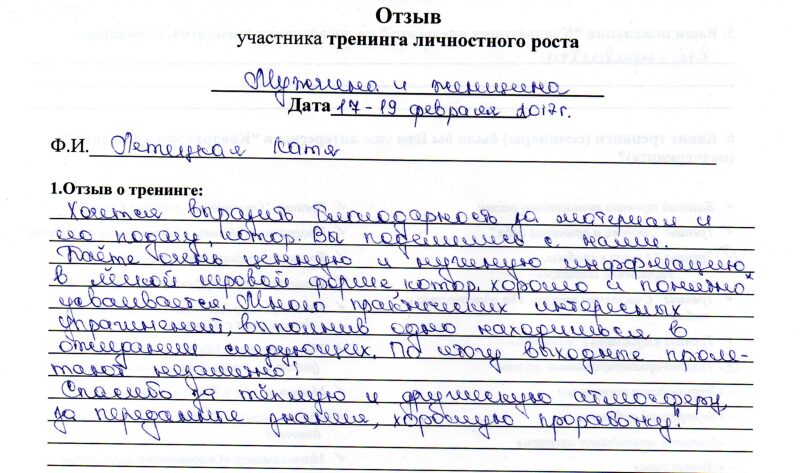 Отзыв
участника тренинга личностного роста
Мужчина и женщина
Дата 17-19 февраля 2017г.
Ф.И. Летецкая Катя
1.Отзыв о тренинге:
Хочется выразить благодарность за материал и
его подачу, котор. Вы поделились с нами.
Даёте очень ценную и нужную информацию
в лёгкой игровой форме котор. хорошо и понятно
усваивается. Много практических интересных
упражнений, выполнив одно находишься в
ожидании следующих. По итогу выходные проле-
тают незаметно!
Спасибо за тёплую и дружескую атмосферу,
за переданные знания, хорошую проработку!